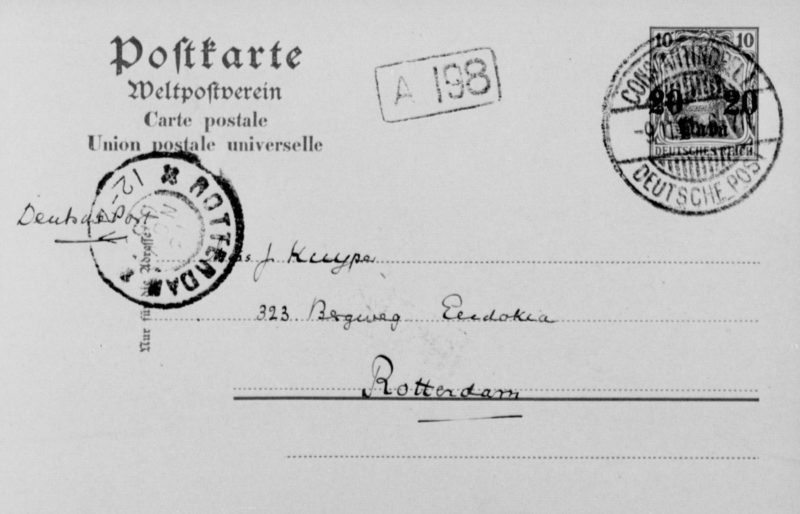 Postkarte
Weltpostverein
Carte postale
Union postale universelle
A 198
10 10
20 20
DEUTSCHES REICH
CONSTANTINOPEL 1
-9 11
DEUTSCHE POST
ROTTERDAM
12-
Deutsche Post
J. Kuype
323 Bergweg Eudokia
Rotterdam
Nur für